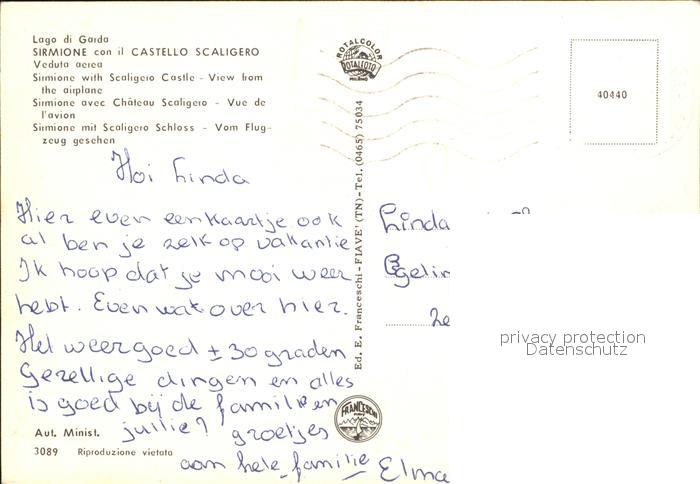 Lago di Garda
SIRMIONE con il CASTELLO SCALIGERO
Veduta aerea
Sirmione with Scaligero Castle - View from
the airplane
Sirmione avec Château Scaligero - Vue de
l'avion
Sirmione mit Scaligero Schloss - Vom Flug-
zeug gesehen
Hoi Linda
Hier even een kaartje ook
al ben je zelf op vakantie
Ik hoop dat je mooi weer
hebt. Even wat over hier.
Het weer goed ± 30 graden
Gezellige dingen en alles
is goed bij de familie en
jullie? groetjes
aan hele familie Elma
Aut. Minist.
3089 Riproduzione vietata
ROTALCOLOR
ROTALFOTO
MILANO
Ed. E. Franceschi - FIAVE' (TN) - Tel. (0465) 75034
FRANCESCHI
40440
Linda
privacy protection
Datenschutz